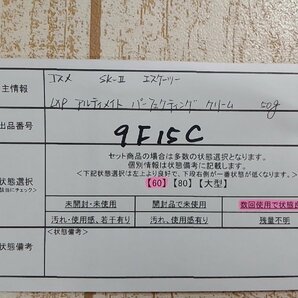 コスメ SK-II エスケーツー
主情報
LXP アルティメイト パーフェクティング クリーム 50g
出品番号
9F15C
セット商品の場合は多数の状態選択となります。
個別情報は状態備考に記載しております。
<下記状態選択は左上より良好で、下段右側が一番状態が低くなります。>
状態選択
【60】【80】【大型】
未開封・未使用
開封品で未使用
数回使用で状態良
汚れ・使用感、若干有り
汚れ、使用感有り
残量不明
状態備考
<状態備考>